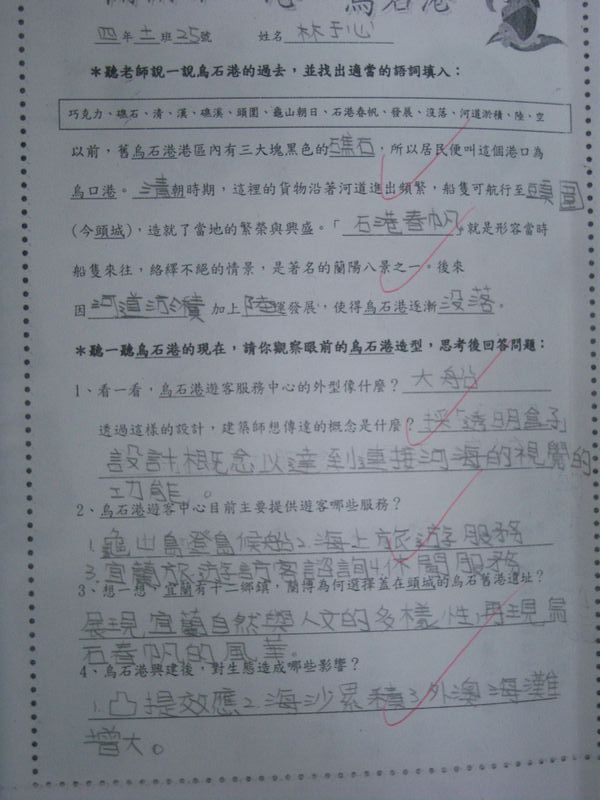 烏石港
四年十一班25號 姓名 林于心
＊聽老師說一說烏石港的過去，並找出適當的語詞填入：
巧克力、礁石、清、漢、礁溪、頭圍、龜山朝日、石港春帆、發展、沒落、河道淤積、陸、空
以前，舊烏石港港區內有三大塊黑色的礁石，所以居民便叫這個港口為
烏口港。清朝時期，這裡的貨物沿著河道進出頻繁，船隻可航行至頭圍
(今頭城)，造就了當地的繁榮與興盛。「石港春帆」就是形容當時
船隻來往，絡繹不絕的情景，是著名的蘭陽八景之一。後來
因河道淤積加上陸運發展，使得烏石港逐漸沒落。
＊聽一聽烏石港的現在，請你觀察眼前的烏石港造型，思考後回答問題：
1、看一看，烏石港遊客服務中心的外型像什麼？大船
透過這樣的設計，建築師想傳達的概念是什麼？採透明盒子
設計概念以達到連接河海的視覺的
功能。
2、烏石港遊客中心目前主要提供遊客哪些服務？
1.龜山島登島候船2.海上旅遊服務
3.宜蘭旅遊訪客諮詢4.休閒服務
3、想一想，宜蘭有十二鄉鎮，蘭博為何選擇蓋在頭城的烏石舊港遺址？
展現宜蘭自然與人文的多樣性,再現烏
石春帆的風華。
4、烏石港興建後，對生態造成哪些影響？
1.凸提效應2.海沙累積3.外澳海灘
增大。